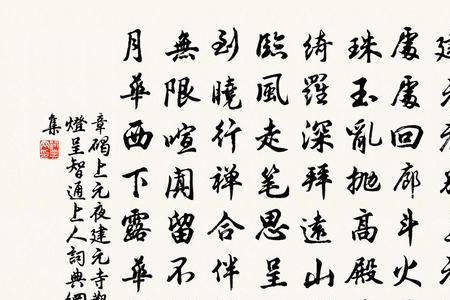 處處回廊斗火
珠玉亂拋高殿
綺羅深拜遠山
臨風走笔思呈
到曉行禅合伴
無限喧闐留不
月華西下露華
章碣上元夜建元寺觀
燈呈智通上人詞典網
集